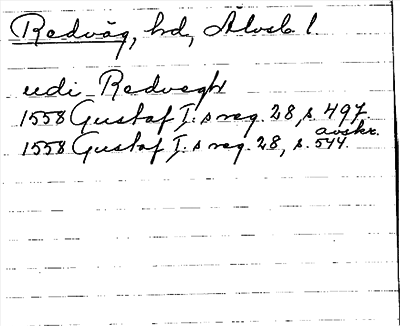 Redväg, hd, Älvsb. l.
udi Redvegh
1558 Gustaf I:s reg. 28, s. 497.
1558 Gustaf I:s reg. 28, s. 544. avskr.